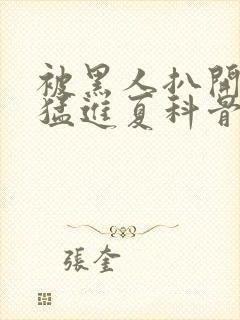 被黑人扒開
猛進夏科骨
張奎